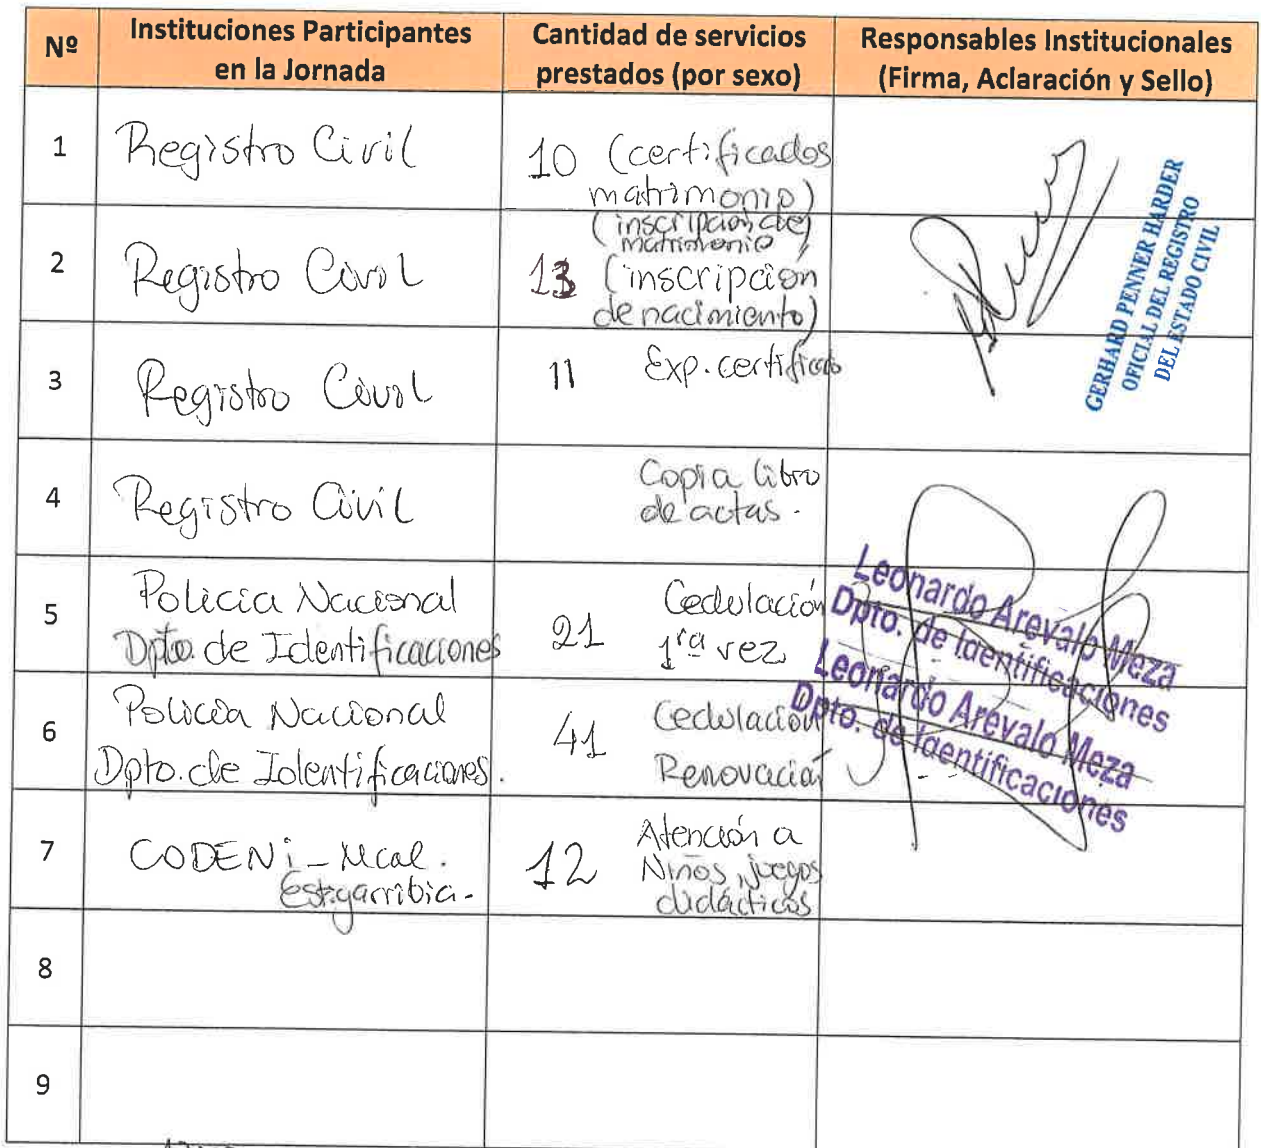 Nº
Instituciones Participantes
en la Jornada
Cantidad de servicios
prestados (por sexo)
Responsables Institucionales
(Firma, Aclaración y Sello)
1
Registro Civil
10 (certificados
matrimonio)
2
Registro Civil
(inscripción de
matrimonio)
13 (inscripción
de nacimiento)
GERHARD PENNER HARDER
OFICIAL DEL REGISTRO
DEL ESTADO CIVIL
3
Registro Civil
11 Exp. certificado
4
Registro Civil
Copia libro
de actas.
5
Policia Nacional
Dpto. de Identificaciones
21 Cedulación
1ra vez
Leonardo Arevalo Meza
Dpto. de Identificaciones
6
Policia Nacional
Dpto. de Identificaciones.
41 Cedulación
Renovación
Leonardo Arevalo Meza
Dpto. de Identificaciones
7
CODENi - Mcal.
Estigarribia.
12 Atención a
Niños, juegos
didácticos
8
9